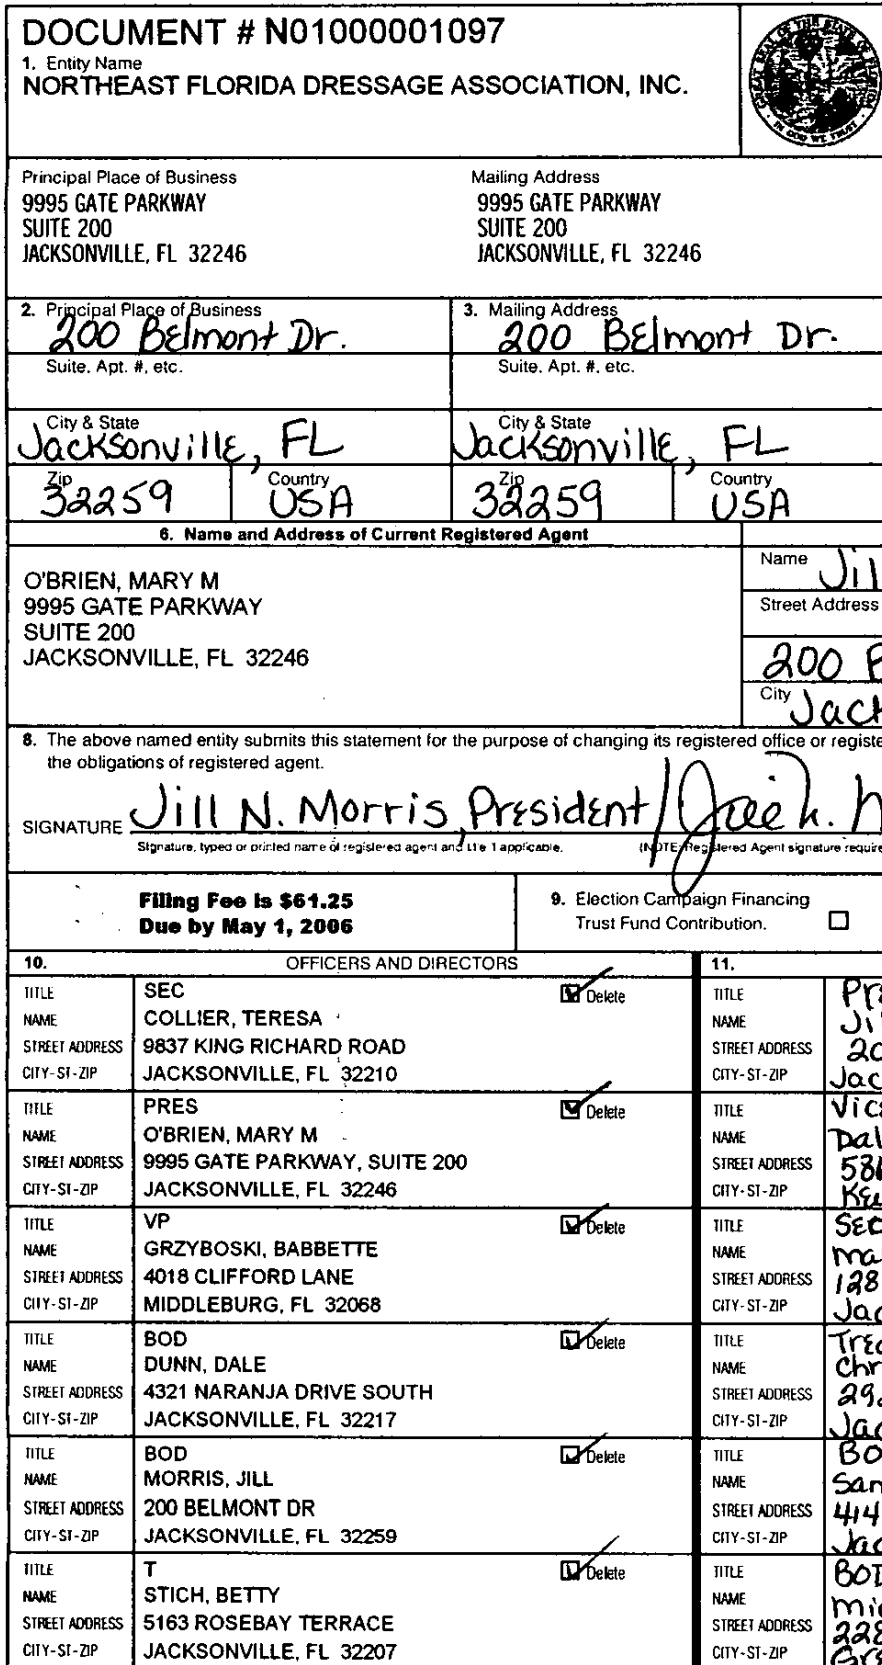 DOCUMENT # N01000001097
1. Entity Name
NORTHEAST FLORIDA DRESSAGE ASSOCIATION, INC.
GREAT SEAL OF THE STATE OF FLORIDA
IN GOD WE TRUST
Principal Place of Business
9995 GATE PARKWAY
SUITE 200
JACKSONVILLE, FL 32246
Mailing Address
9995 GATE PARKWAY
SUITE 200
JACKSONVILLE, FL 32246
2. Principal Place of Business
200 Belmont Dr.
Suite. Apt. #, etc.
City & State
Jacksonville, FL
Zip
32259
Country
USA
3. Mailing Address
200 Belmont Dr.
Suite. Apt. #. etc.
City & State
Jacksonville, FL
Zip
32259
Country
USA
6. Name and Address of Current Registered Agent
O'BRIEN, MARY M
9995 GATE PARKWAY
SUITE 200
JACKSONVILLE, FL 32246
Name Jil
Street Address
200 B
City Jack
8. The above named entity submits this statement for the purpose of changing its registered office or registe
the obligations of registered agent.
SIGNATURE Jill N. Morris, President /
Signature, typed or printed name of registered agent and title if applicable. (NOTE: Registered Agent signature require
Filing Fee is $61.25
Due by May 1, 2006
9. Election Campaign Financing
Trust Fund Contribution.
10. OFFICERS AND DIRECTORS
TITLE SEC Delete
NAME COLLIER, TERESA
STREET ADDRESS 9837 KING RICHARD ROAD
CITY-ST-ZIP JACKSONVILLE, FL 32210
TITLE PRES Delete
NAME O'BRIEN, MARY M
STREET ADDRESS 9995 GATE PARKWAY, SUITE 200
CITY-ST-ZIP JACKSONVILLE, FL 32246
TITLE VP Delete
NAME GRZYBOSKI, BABBETTE
STREET ADDRESS 4018 CLIFFORD LANE
CITY-ST-ZIP MIDDLEBURG, FL 32068
TITLE BOD Delete
NAME DUNN, DALE
STREET ADDRESS 4321 NARANJA DRIVE SOUTH
CITY-ST-ZIP JACKSONVILLE, FL 32217
TITLE BOD Delete
NAME MORRIS, JILL
STREET ADDRESS 200 BELMONT DR
CITY-ST-ZIP JACKSONVILLE, FL 32259
TITLE T Delete
NAME STICH, BETTY
STREET ADDRESS 5163 ROSEBAY TERRACE
CITY-ST-ZIP JACKSONVILLE, FL 32207
11.
TITLE Pre
NAME Ji
STREET ADDRESS 20
CITY-ST-ZIP Jac
TITLE Vice
NAME Dal
STREET ADDRESS 586
CITY-ST-ZIP
TITLE Sec
NAME Ma
STREET ADDRESS 128
CITY-ST-ZIP Jac
TITLE Trea
NAME Chr
STREET ADDRESS 29
CITY-ST-ZIP Jac
TITLE BO
NAME San
STREET ADDRESS 414
CITY-ST-ZIP Jac
TITLE BOD
NAME Mic
STREET ADDRESS 228
CITY-ST-ZIP Gre